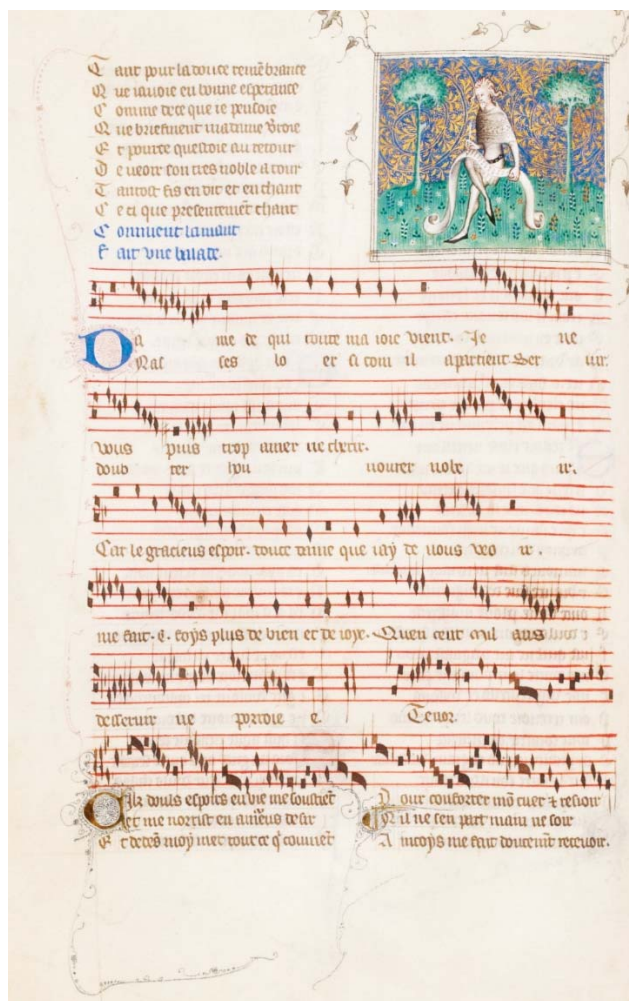 Tant pour la douce remẽbrance
Que iauoie en bonne esperance
Comme de ce que ie pensoie
Que briefment ma dame verroie
Et pour ce questoie au retour
De veoir son tres noble atour
Tantost fis en dit et en chant
Ce ci que presentement chant
Comment lamant
fait vne balade.
Da me de qui toute ma ioie vient. Je ne
Nas ses lo er si com il apartient Ser uir.
vous puis trop amer ne chrir.
doub ter hou nourer uobe ir.
Car le gracieus espoir. douce dame que iay de uous veo ir.
me fait. c. foys plus de bien et de ioye. Quen cent mil ans
desseruir ne porroie e. Tenor.
Cilz douls espoirs en vie me soustiẽt
Et me norrist en amoureus desir
Et dedẽs moy met tout ce q̃ couuiẽt
Pour conforter mõ cuer & resioir
Nil ne sen part main ne soir
Ancoys me fait doucemẽt receuoir.